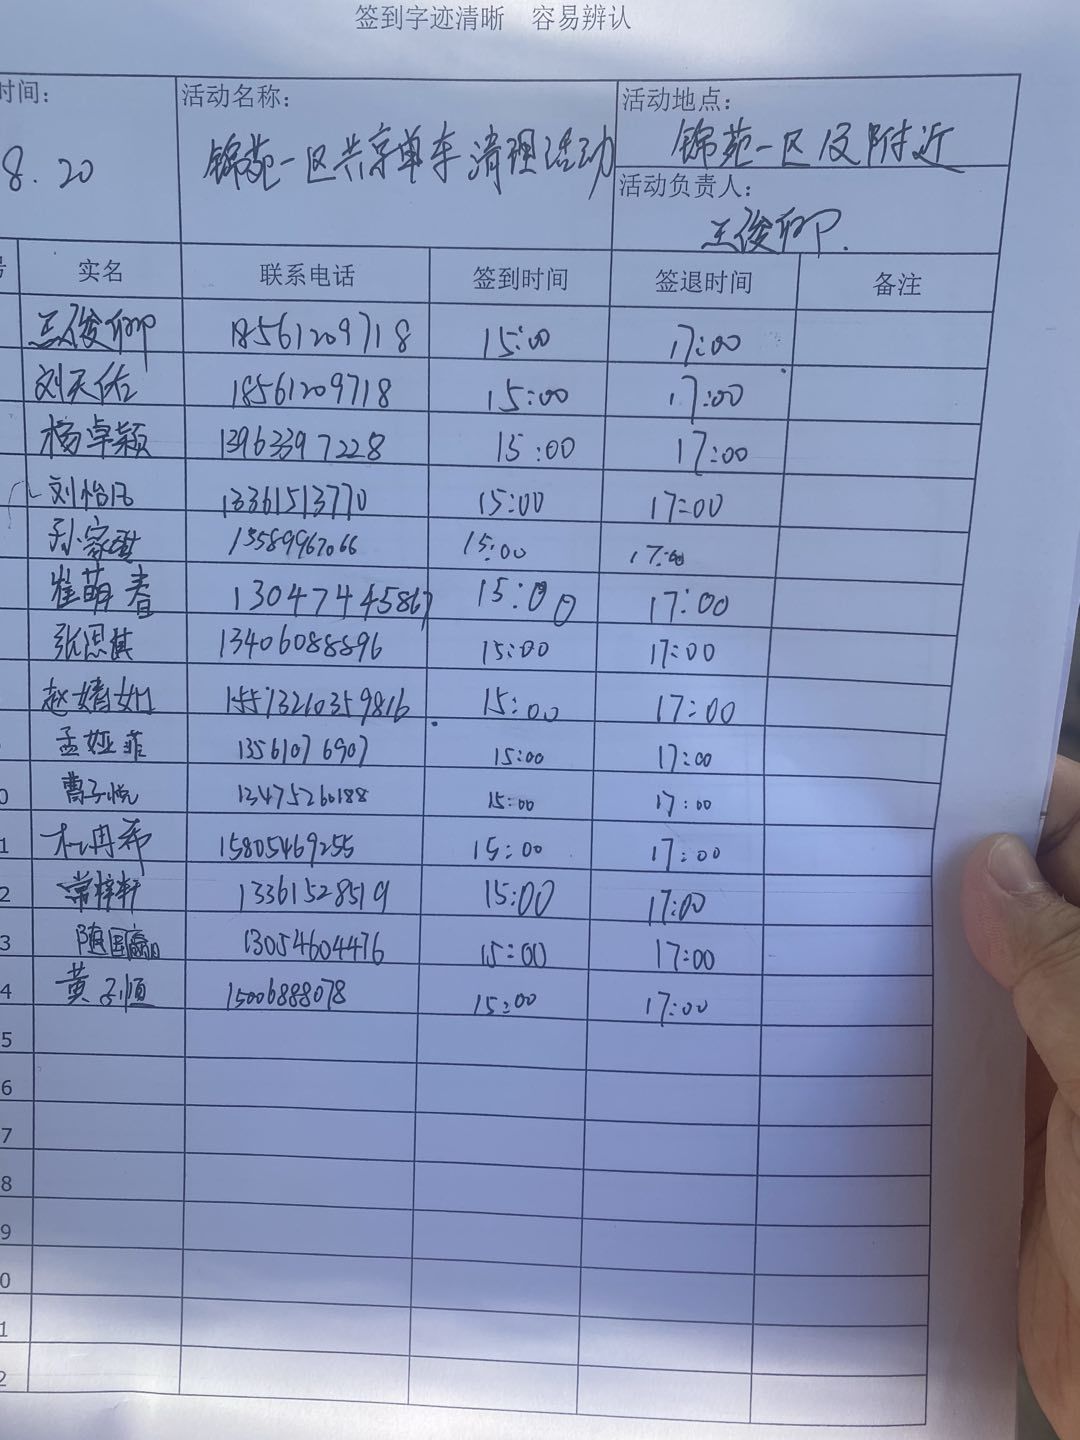 签到字迹清晰 容易辨认
时间: 活动名称: 活动地点:
8.20 锦苑一区共享单车清理活动 锦苑一区及附近
活动负责人:
王俊卿
号 实名 联系电话 签到时间 签退时间 备注
王俊卿 18561209718 15:00 17:00
刘天佑 18561209718 15:00 17:00
杨卓颖 13963397228 15:00 17:00
刘怡凡 13361513770 15:00 17:00
孙家琪 15589967066 15:00 17:00
崔萌春 13047445867 15:00 17:00
张思淇 13406088896 15:00 17:00
赵婧如 15:00 17:00
孟娅菲 13561076907 15:00 17:00
0 曹子悦 13475260188 15:00 17:00
1 杜冉希 15805469255 15:00 17:00
2 常梓轩 13361528519 15:00 17:00
3 随国赢 13054604476 15:00 17:00
4 黄子恒 15006888078 15:00 17:00
5
6
7
8
9
0
1
2